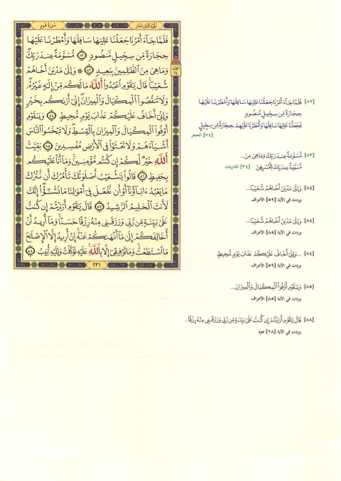 الجزء الثاني عشر
سورة هود
فَلَمَّا جَآءَ أَمْرُنَا جَعَلْنَا عَٰلِيَهَا سَافِلَهَا وَأَمْطَرْنَا عَلَيْهَا
حِجَارَةً مِّن سِجِّيلٍ مَّنضُودٍ ۝ مُّسَوَّمَةً عِندَ رَبِّكَ
وَمَا هِيَ مِنَ ٱلظَّٰلِمِينَ بِبَعِيدٍ ۝ وَإِلَىٰ مَدْيَنَ أَخَاهُمْ
شُعَيْبًا قَالَ يَٰقَوْمِ ٱعْبُدُوا۟ ٱللَّهَ مَا لَكُم مِّنْ إِلَٰهٍ غَيْرُهُۥ
وَلَا تَنقُصُوا۟ ٱلْمِكْيَالَ وَٱلْمِيزَانَ إِنِّىٓ أَرَىٰكُم بِخَيْرٍ
وَإِنِّىٓ أَخَافُ عَلَيْكُمْ عَذَابَ يَوْمٍ مُّحِيطٍ ۝ وَيَٰقَوْمِ
أَوْفُوا۟ ٱلْمِكْيَالَ وَٱلْمِيزَانَ بِٱلْقِسْطِ وَلَا تَبْخَسُوا۟ ٱلنَّاسَ
أَشْيَآءَهُمْ وَلَا تَعْثَوْا۟ فِى ٱلْأَرْضِ مُفْسِدِينَ ۝ بَقِيَّتُ
ٱللَّهِ خَيْرٌ لَّكُمْ إِن كُنتُم مُّؤْمِنِينَ وَمَآ أَنَا۠ عَلَيْكُم
بِحَفِيظٍ ۝ قَالُوا۟ يَٰشُعَيْبُ أَصَلَوٰتُكَ تَأْمُرُكَ أَن نَّتْرُكَ
مَا يَعْبُدُ ءَابَآؤُنَآ أَوْ أَن نَّفْعَلَ فِىٓ أَمْوَٰلِنَا مَا نَشَٰٓؤُا۟ إِنَّكَ
لَأَنتَ ٱلْحَلِيمُ ٱلرَّشِيدُ ۝ قَالَ يَٰقَوْمِ أَرَءَيْتُمْ إِن كُنتُ
عَلَىٰ بَيِّنَةٍ مِّن رَّبِّى وَرَزَقَنِى مِنْهُ رِزْقًا حَسَنًا وَمَآ أُرِيدُ أَنْ
أُخَالِفَكُمْ إِلَىٰ مَآ أَنْهَىٰكُمْ عَنْهُ إِنْ أُرِيدُ إِلَّا ٱلْإِصْلَٰحَ
مَا ٱسْتَطَعْتُ وَمَا تَوْفِيقِىٓ إِلَّا بِٱللَّهِ عَلَيْهِ تَوَكَّلْتُ وَإِلَيْهِ أُنِيبُ ۝
٢٣١
[٨٢] فَلَمَّا جَآءَ أَمْرُنَا جَعَلْنَا عَٰلِيَهَا سَافِلَهَا وَأَمْطَرْنَا عَلَيْهَا
حِجَارَةً مِّن سِجِّيلٍ مَّنضُودٍ
فَجَعَلْنَا عَٰلِيَهَا سَافِلَهَا وَأَمْطَرْنَا عَلَيْهِمْ حِجَارَةً مِّن سِجِّيلٍ
[٧٤] الحجر
[٨٣] مُّسَوَّمَةً عِندَ رَبِّكَ وَمَا هِيَ مِنَ...
مُّسَوَّمَةً عِندَ رَبِّكَ لِلْمُسْرِفِينَ [٣٤] الذاريات
[٨٤] وَإِلَىٰ مَدْيَنَ أَخَاهُمْ شُعَيْبًا...
وردت في الآية [٨٥] الأعراف
[٨٤] وَإِلَىٰ مَدْيَنَ أَخَاهُمْ شُعَيْبًا...
وردت في الآية [٥٩] الأعراف
[٨٤] ...وَإِنِّىٓ أَخَافُ عَلَيْكُمْ عَذَابَ يَوْمٍ مُّحِيطٍ
وردت في الآية [٥٩] الأعراف
[٨٥] وَيَٰقَوْمِ أَوْفُوا۟ ٱلْمِكْيَالَ وَٱلْمِيزَانَ...
وردت في الآية [٨٥] الأعراف
[٨٨] قَالَ يَٰقَوْمِ أَرَءَيْتُمْ إِن كُنتُ عَلَىٰ بَيِّنَةٍ مِّن رَّبِّى وَرَزَقَنِى مِنْهُ رِزْقًا...
وردت في الآية [٢٨] هود